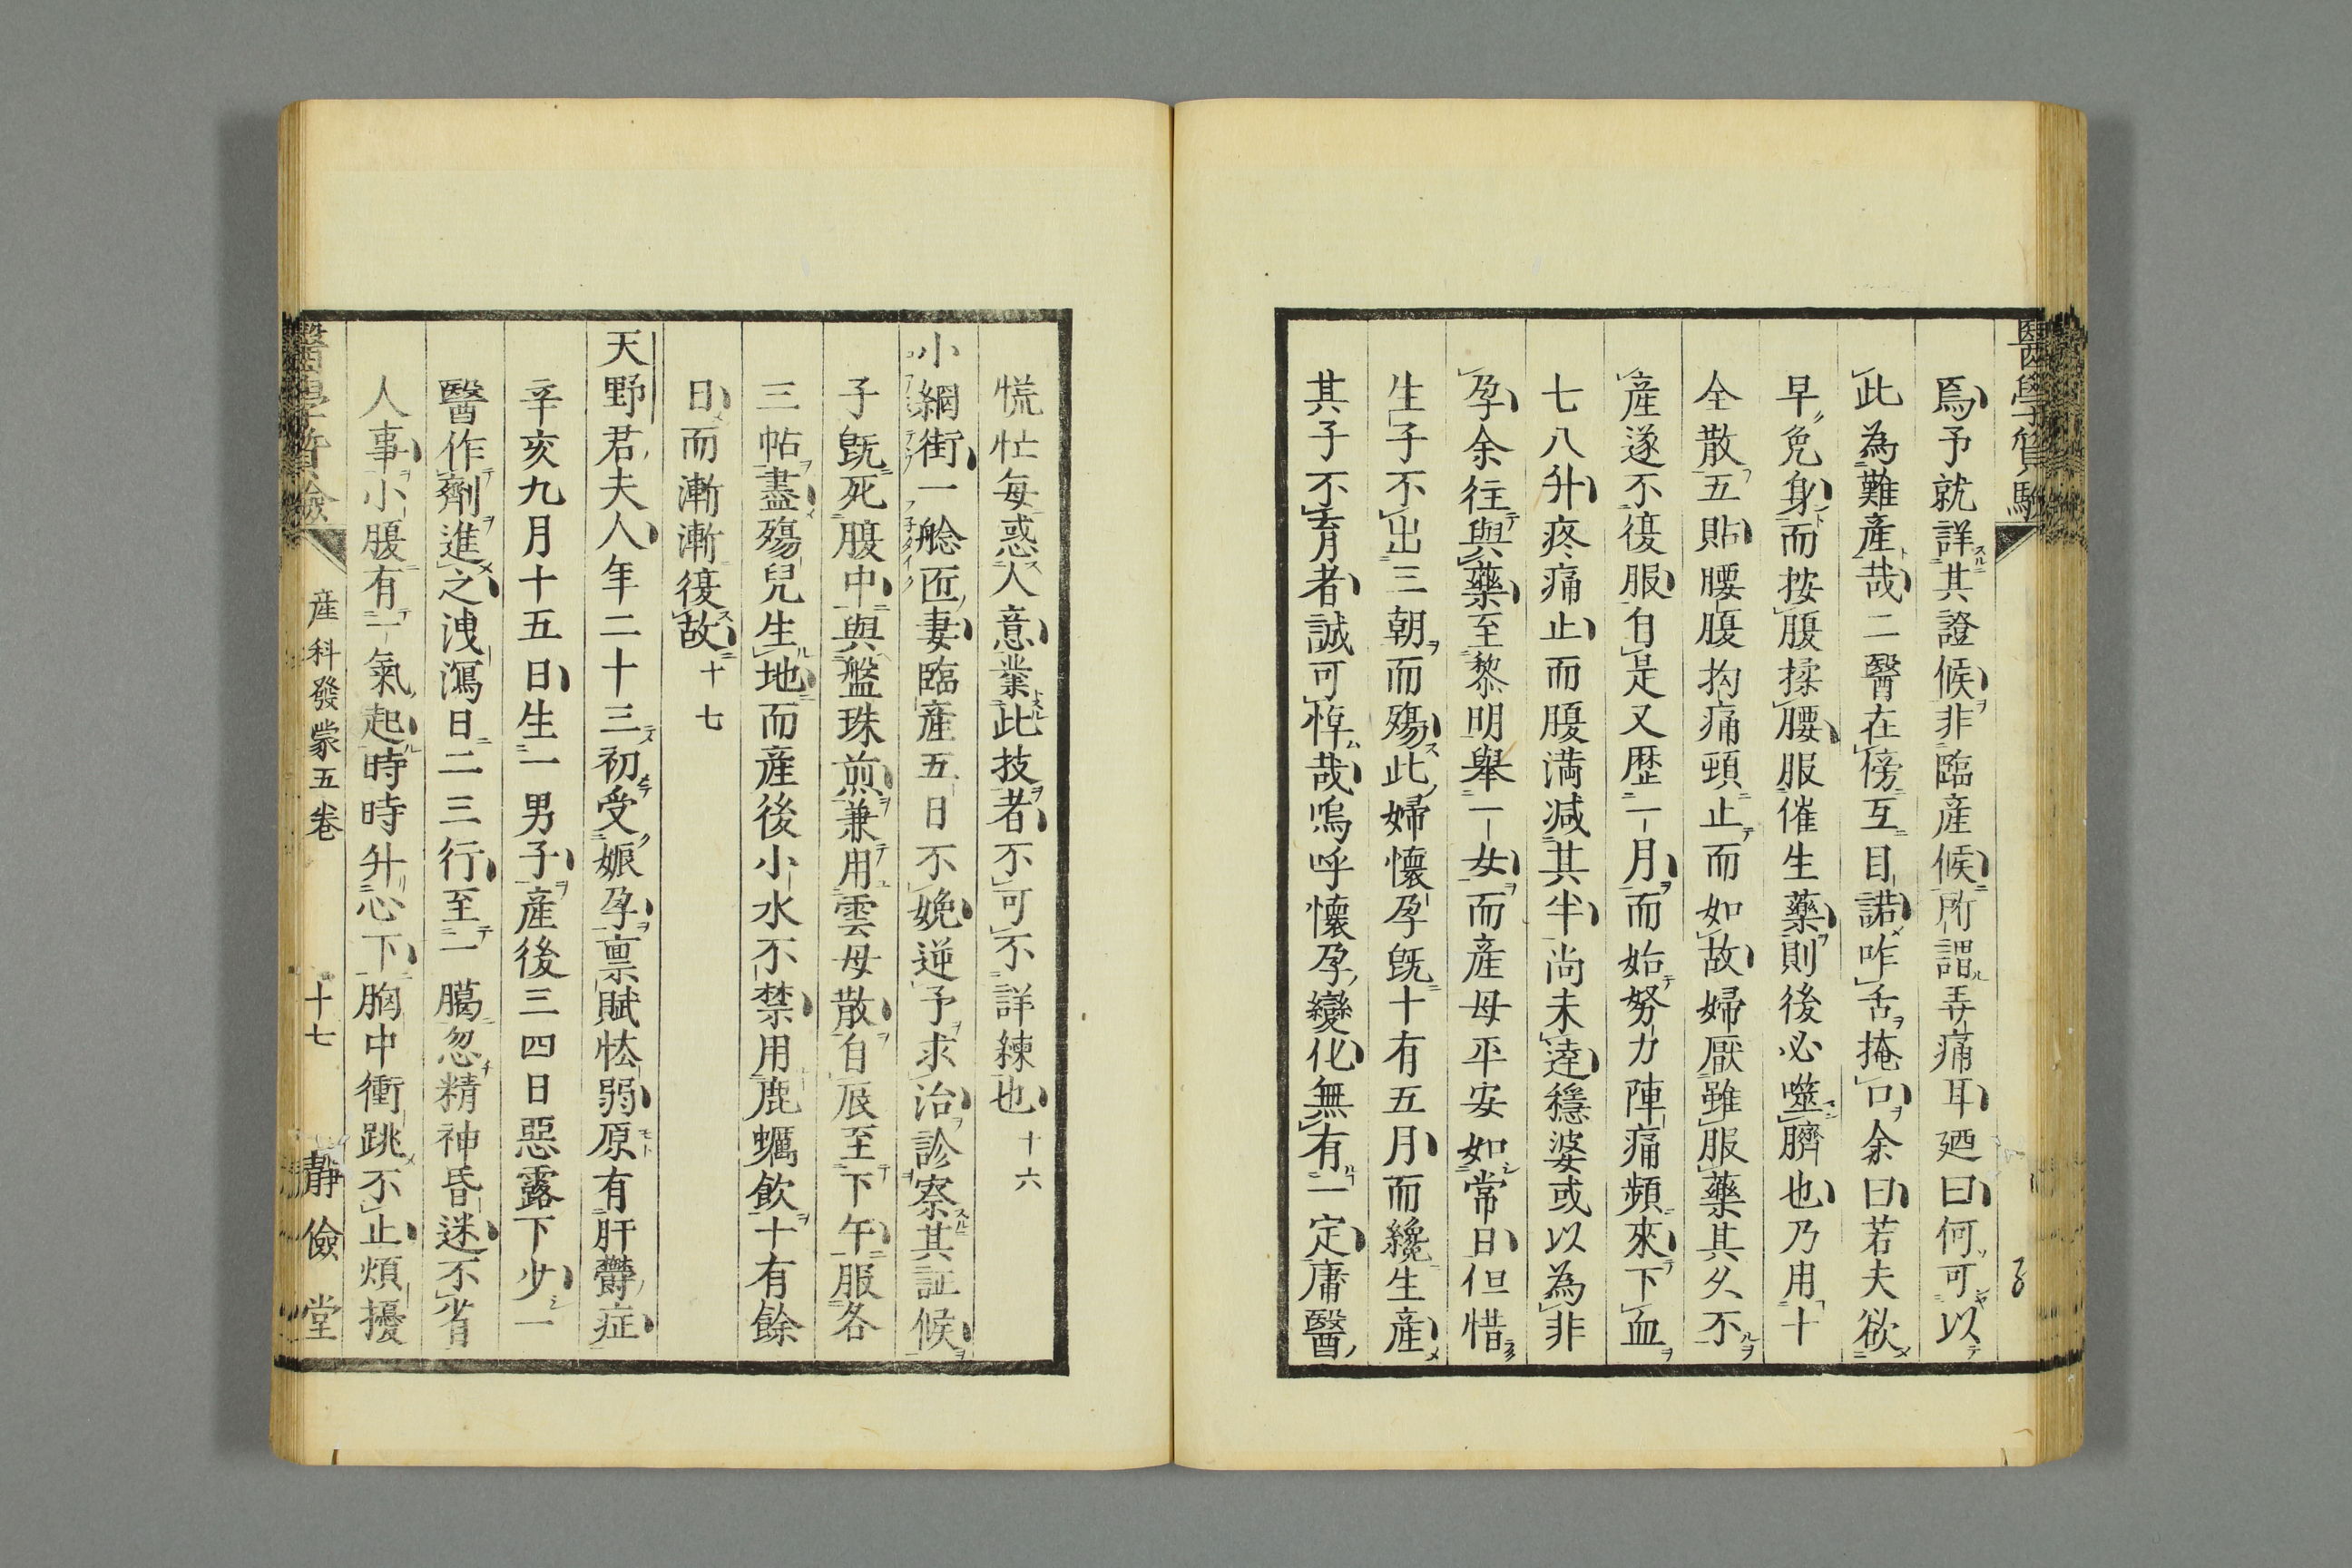 醫學質驗
焉予就詳其證候非臨産候所謂弄痛耳廼曰何可以
此為難産哉二醫在傍互目諾咋舌掩口余曰若夫欲
早免身而按腹揉腰服催生藥則後必噬臍也乃用十
全散五貼腰腹拘痛頓止而如故婦厭雖服藥其久不
産遂不復服自是又歴一月而始努力陣痛頻來下血
七八升疼痛止而腹満减其半尚未達穩婆或以為非
孕余往與藥至黎明舉一女而産母平安如常日但惜
生子不出三朝而殤此婦懷孕既十有五月而纔生産
其子不育者誠可悼哉嗚呼懷孕變化無有一定庸醫
慌忙每惑人意業此技者不可不詳練也 十六
小網街一舩匠妻臨産五日不娩逆予求治診察其証候
子既死腹中與盤珠煎兼用雲母散自辰至下午服各
三帖盡殤兒生地而産後小水不禁用鹿蠣飲十有餘
日而漸漸復故 十七
天野君夫人年二十三初受娠孕禀賦怯弱原有肝欝症
辛亥九月十五日生一男子産後三四日惡露下少一
醫作劑進之洩瀉日二三行至一臈忽精神昏迷不省
人事小腹有一氣起時時升心下胸中衝跳不止煩擾
醫學質驗
産科發蒙五卷
十七
靜儉堂